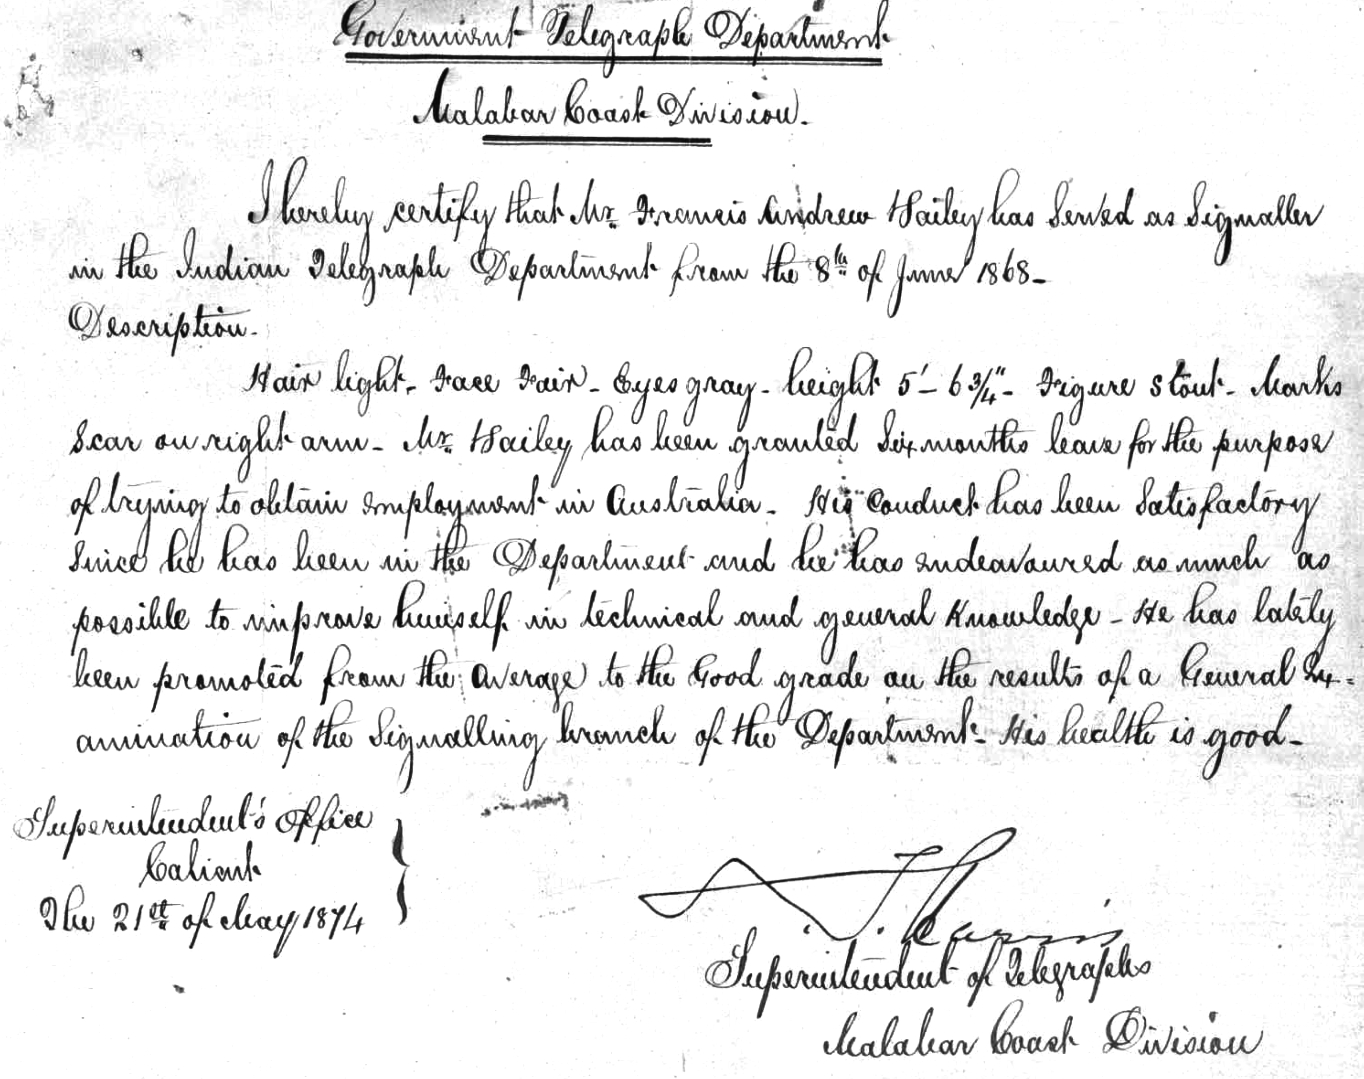 Government Telegraph Department
Malabar Coast Division.
I hereby certify that Mr. Francis Andrew Hailey has Served as Signaller
in the Indian Telegraph Department from the 8th of June 1868 -
Description.
Hair light. Face Fair - Eyes gray - height 5' - 6 3/4" - Figure Stout - Marks
Scar on right arm - Mr. Hailey has been granted Six months leave for the purpose
of trying to obtain employment in Australia - His Conduct has been Satisfactory
Since he has been in the Department and he has endeavoured as much as
possible to improve himself in technical and general Knowledge - He has lately
been promoted from the Average to the Good grade on the results of a General Ex-
amination of the Signalling branch of the Department - His health is good -
Superintendent's Office
Calicut
The 21st of May 1874
Superintendent of Telegraphs
Malabar Coast Division